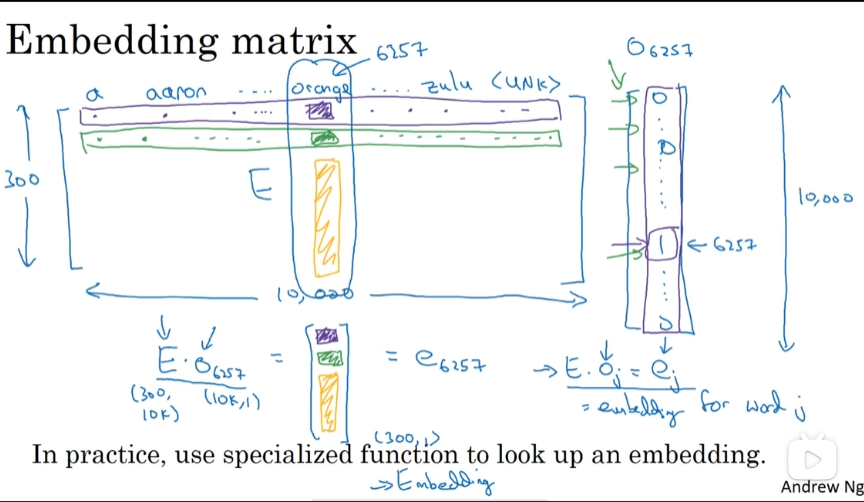 Embedding matrix
6257
O6257
a aaron .... orange .... zulu <UNK>
0
0
300
E
10,000
1 ← 6257
10,000
0
E · O6257 = [ ] = e6257
(300, 10K) (10K, 1)
(300, 1)
→ E · Oj = ej
= embedding for word j
In practice, use specialized function to look up an embedding.
→ Embedding
Andrew Ng